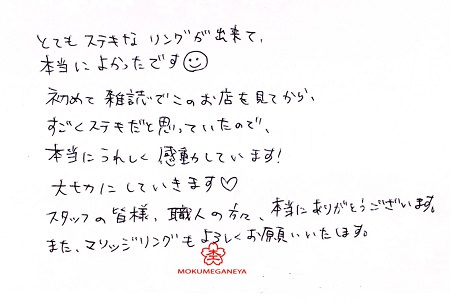 とても ステキな リングが出来て、
本当に よかったです☺
初めて 雑誌で この お店を 見てから、
すごく ステキだと 思っていたので、
本当に うれしく 感動しています!
大切に していきます♡
スタッフの 皆様、職人の 方々、本当に ありがとうございます。
また、マリッジリングも よろしく お願いいたします。
MOKUMEGANEYA